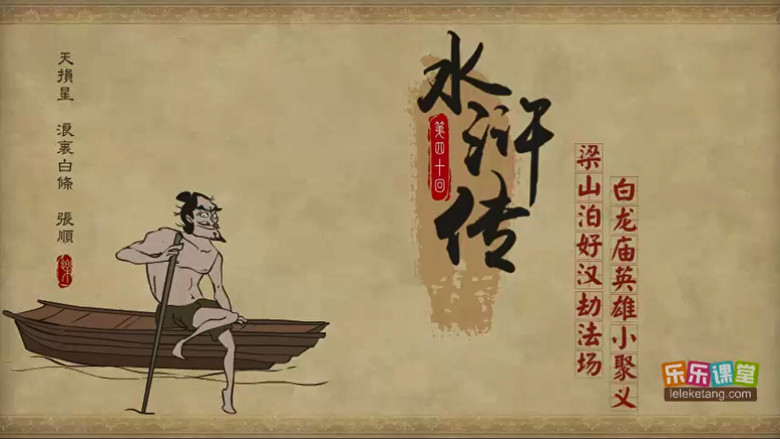 天損星 浪裏白條 張順
水浒传
第四十回
梁山泊好汉劫法场
白龙庙英雄小聚义
乐乐课堂
leleketang.com